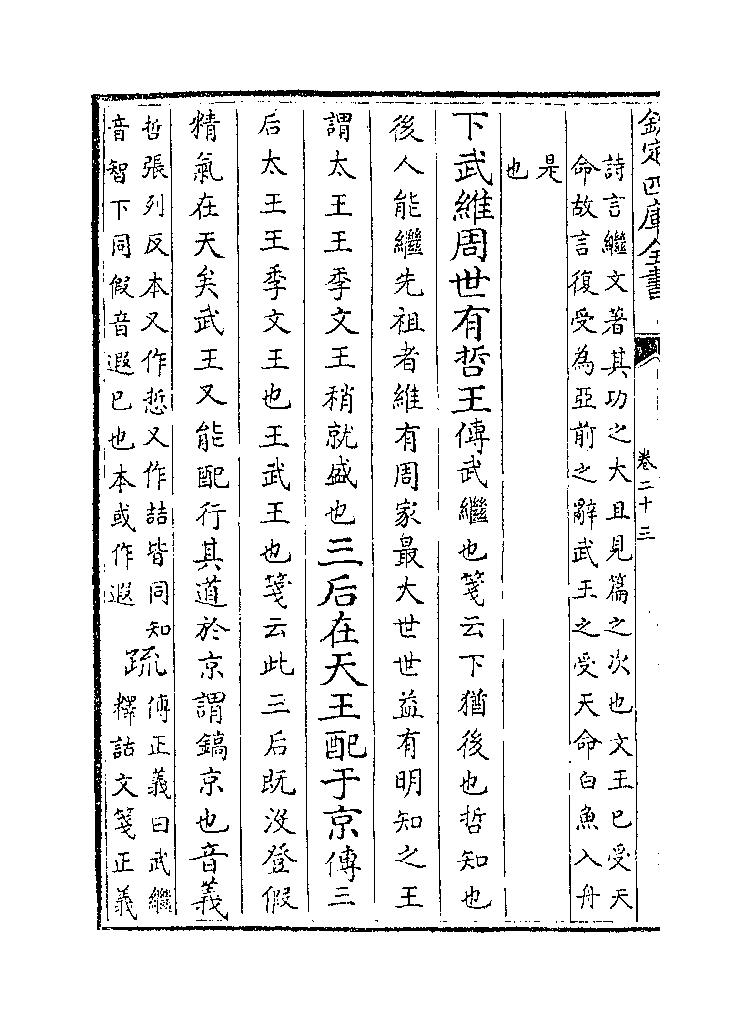 欽定四庫全書
卷二十三
詩言繼文著其功之大且見篇之次也文王已受天
命故言復受為亞前之辭武王之受天命白魚入舟
是
也
下武維周世有哲王傳武繼也箋云下猶後也哲知也
後人能繼先祖者維有周家最大世世益有明知之王
謂太王王季文王稍就盛也三后在天王配于京傳三
后太王王季文王也王武王也箋云此三后既沒登假
精氣在天矣武王又能配行其道於京謂鎬京也音義
哲張列反本又作悊又作喆皆同知
音智下同假音遐已也本或作遐
疏
傳正義曰武繼
釋詁文箋正義